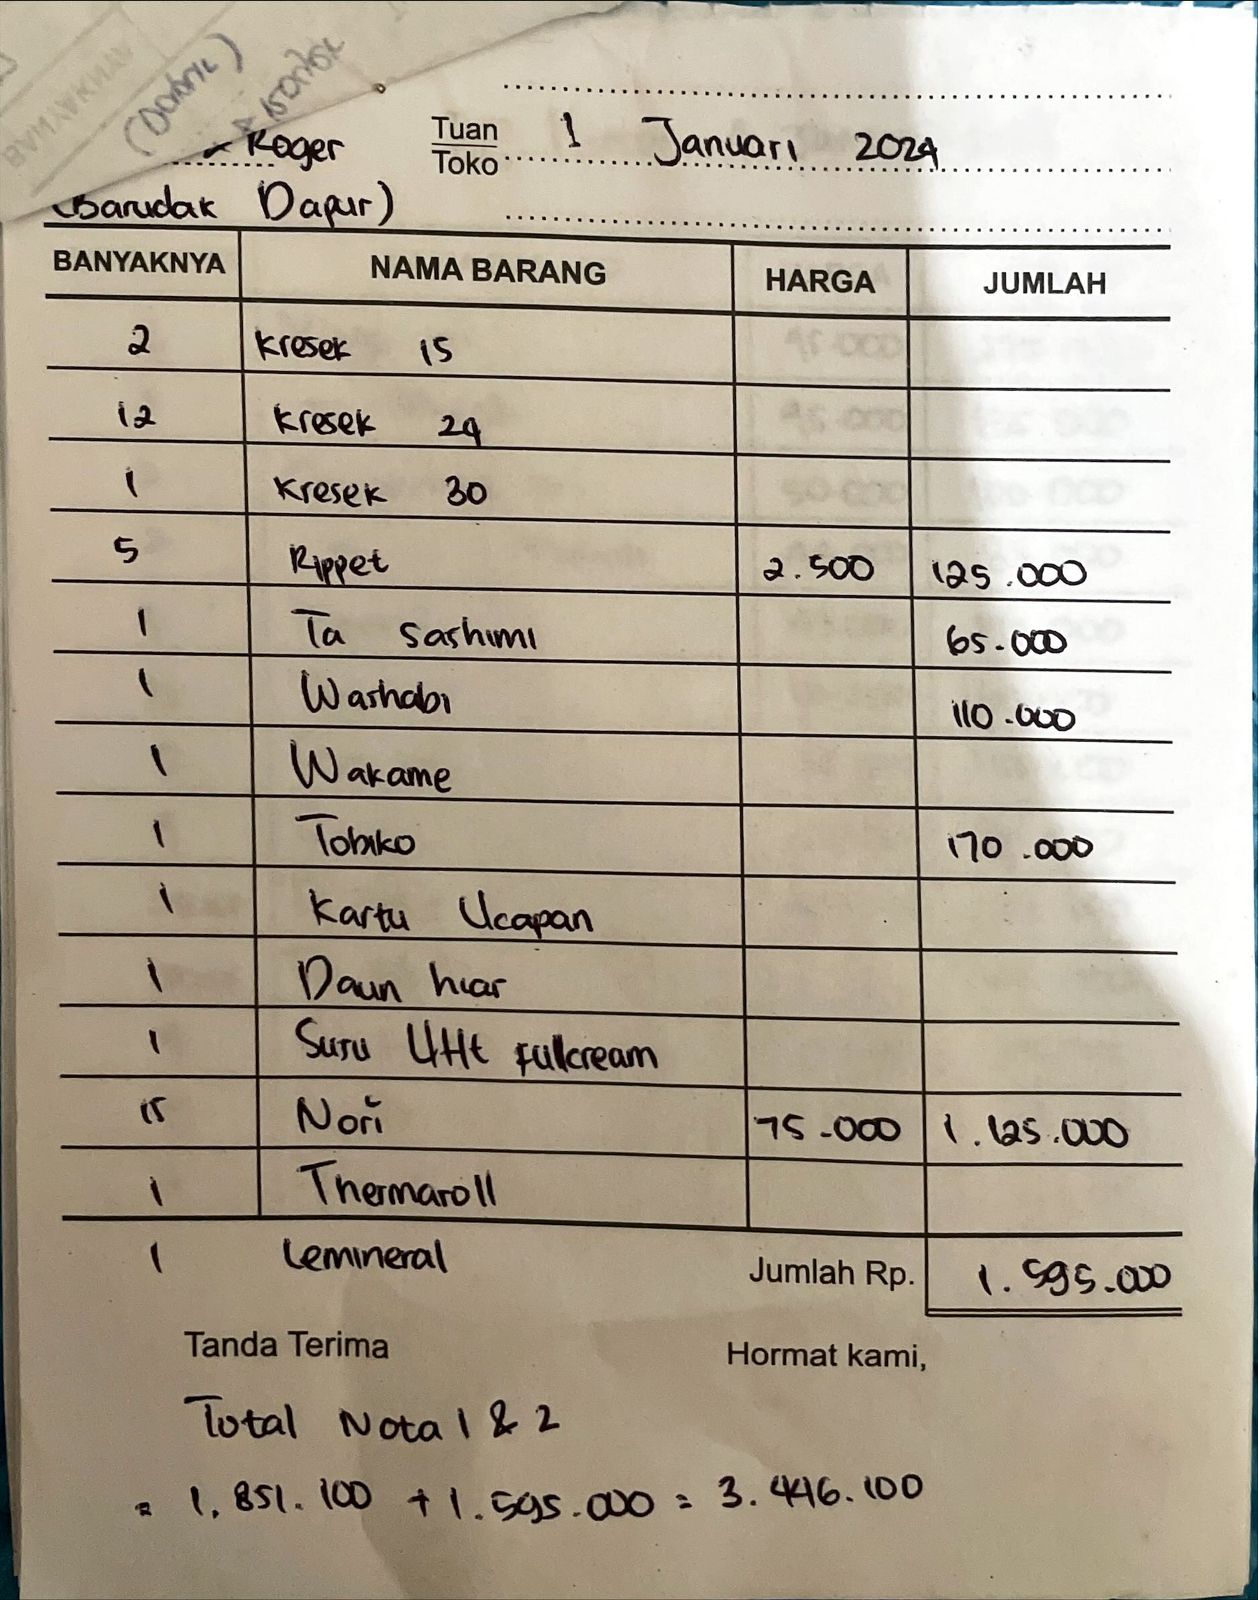 BANYAKNYA
(DORAYAKI)
Roger Tuan 1 Januari 2024
Toko
(Barudak Dapur)
BANYAKNYA NAMA BARANG HARGA JUMLAH
2 Kresek 15
12 Kresek 24
1 Kresek 30
5 Rippet 2.500 125.000
1 Ta Sashimi 65.000
1 Washabi 110.000
1 Wakame
1 Tobiko 170.000
1 Kartu Ucapan
1 Daun hiar
1 Susu UHt Fulcream
15 Nori 75.000 1.125.000
1 Thermaroll
1 Lemineral Jumlah Rp. 1.595.000
Tanda Terima Hormat kami,
Total Nota 1 & 2
= 1.851.100 + 1.595.000 = 3.446.100